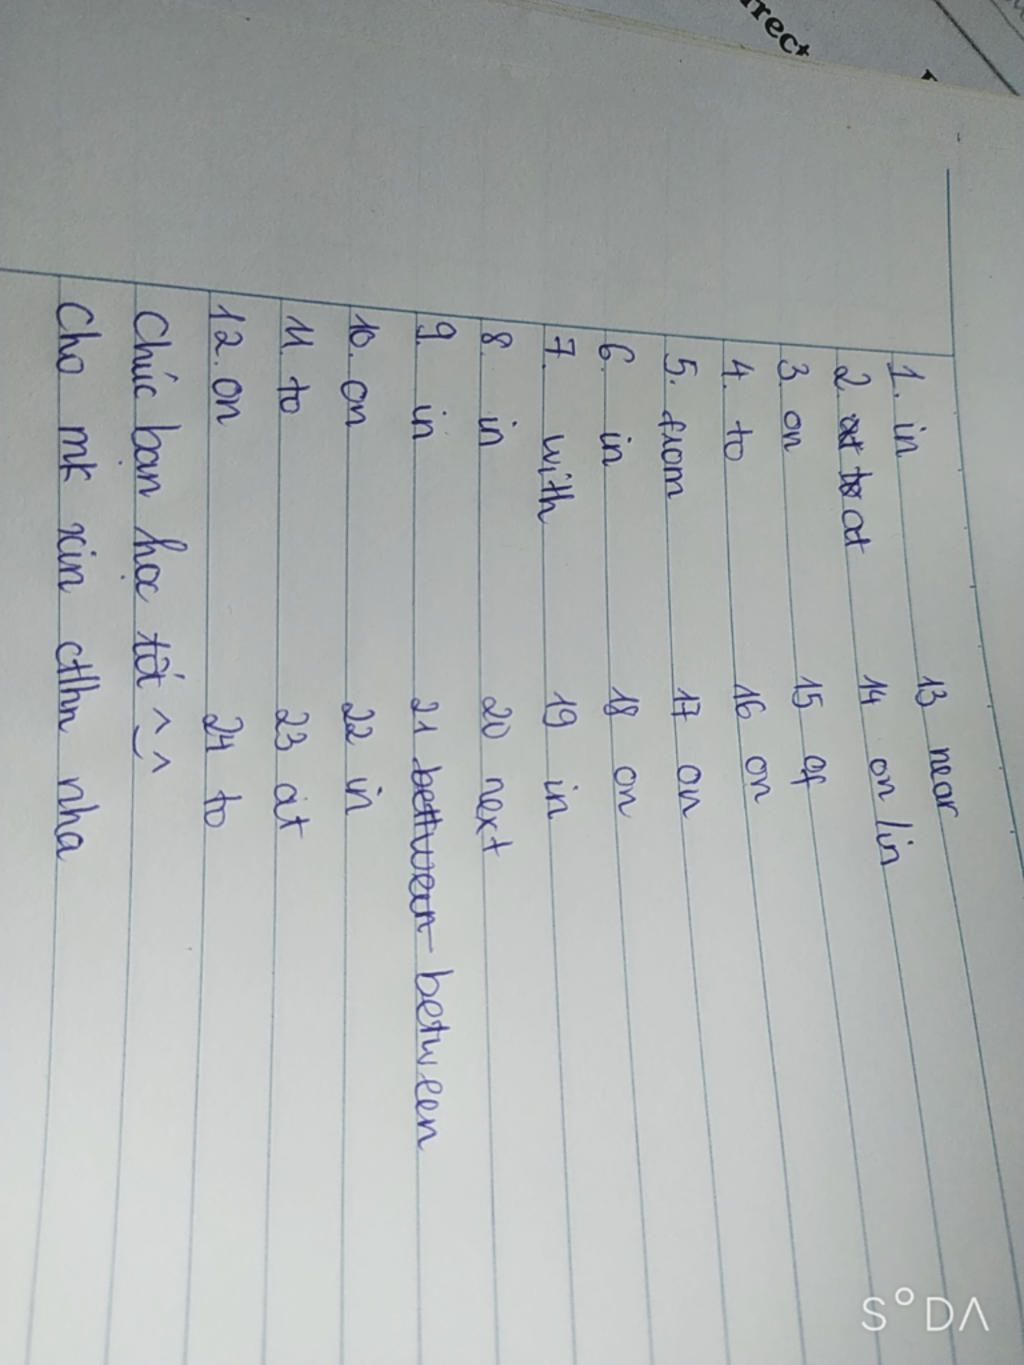 rrect
1. in 13 near
2 at to at 14 on / in
3 on 15 of
4 to 16 on
5. from 17 on
6 in 18 on
7. with 19 in
8. in 20 next
9. in 21 between
10. on 22 in
11 to 23 at
12. on 24 to
Chúc bạn học tốt ^_^
Cho mk xin ctlhn nha
SODA